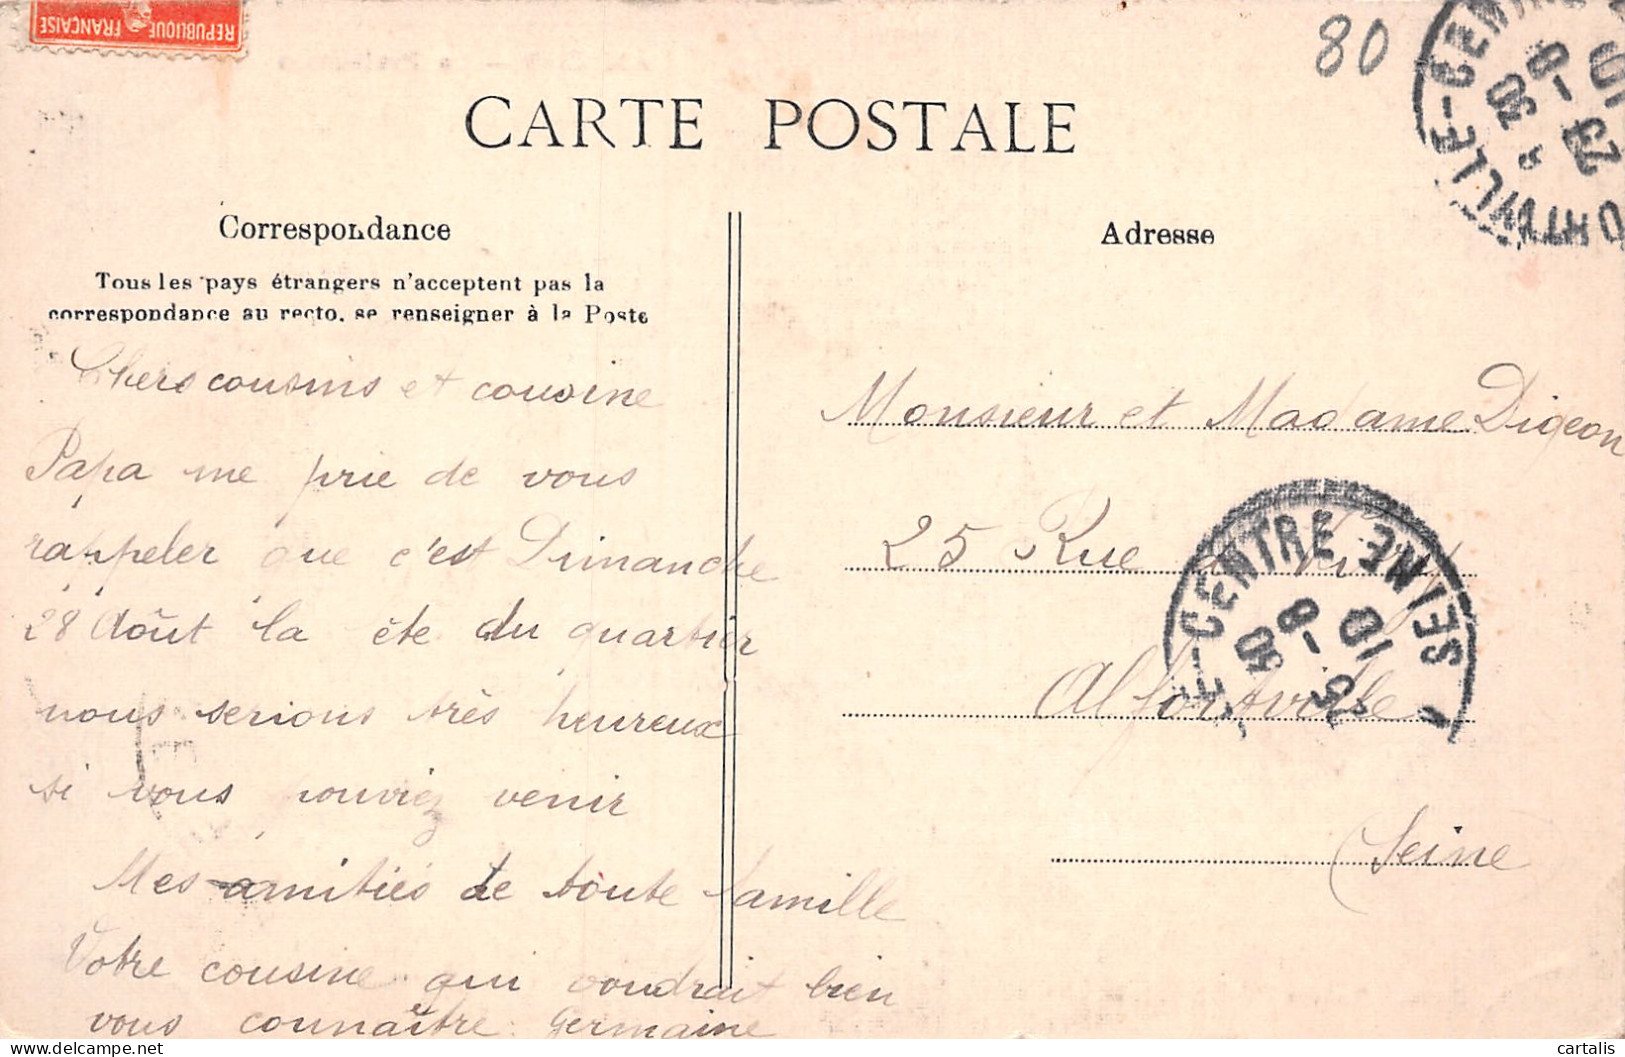 REPUBLIQUE FRANÇAISE
80
CARTE POSTALE
Correspondance
Tous les pays étrangers n'acceptent pas la
correspondance au recto, se renseigner à la Poste
Chers cousins et cousine
Papa me prie de vous
rappeler que c'est Dimanche
28 Août la ête du quartier
nous serions très heureux
si vous pouviez venir
Mes amitiés de toute famille
Votre cousine qui voudrait bien
vous connaître Germaine
Adresse
Monsieur et Madame Digeon
25 Rue de Viry
Alfortville
Seine
CENTRE SEINE
cartalis